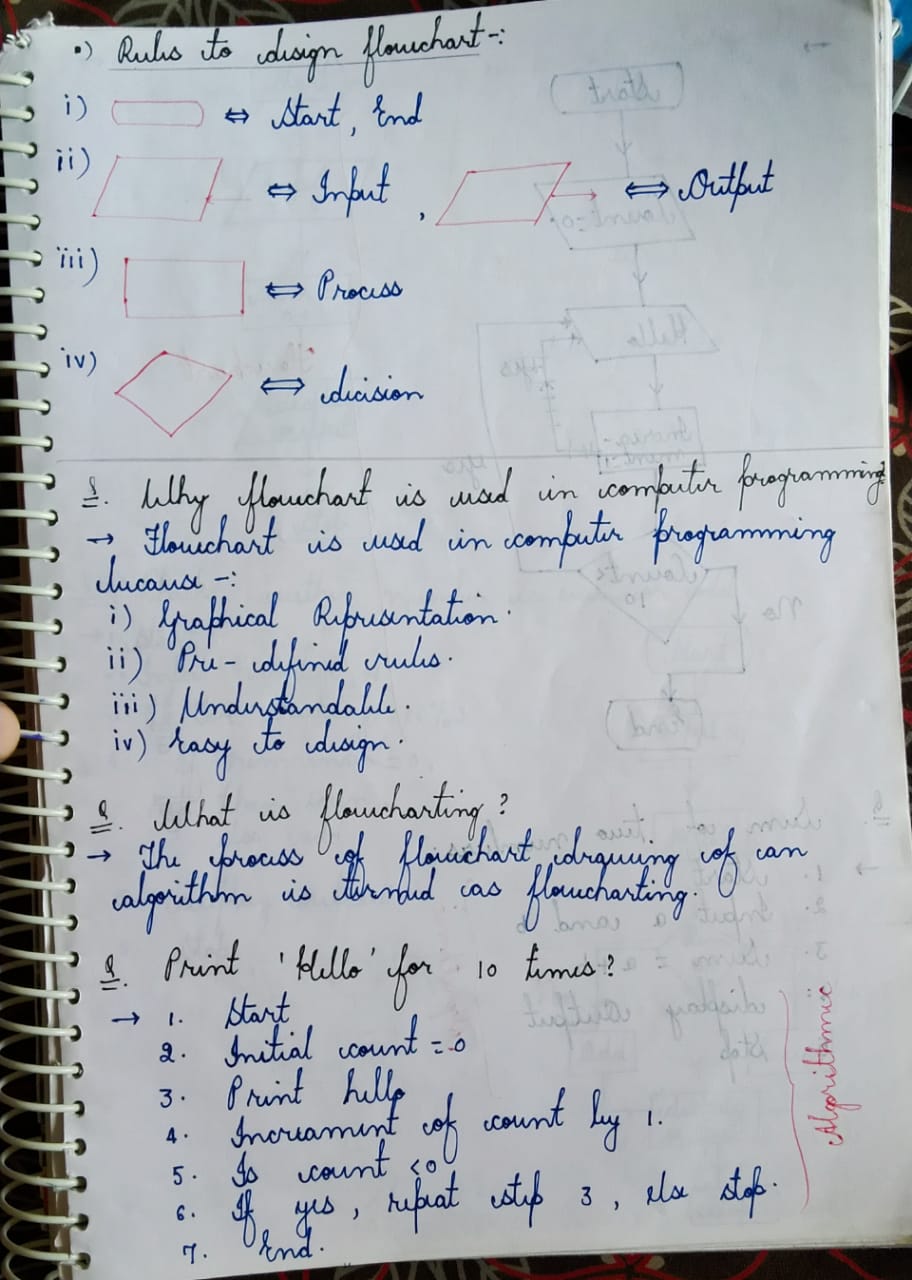 •) Rules to design flowchart -:
i) ⇔ Start, End
ii) ⇔ Input , ⇔ Output
iii) ⇔ Process
iv) ⇔ decision
Q. Why flowchart is used in computer programming?
→ Flowchart is used in computer programming
because -:
i) Graphical Representation.
ii) Pre-defined rules.
iii) Understandable.
iv) Easy to design.
Q. What is flowcharting?
→ The process of flowchart drawing of an
algorithm is termed as flowcharting.
Q. Print 'Hello' for 10 times?
→ 1. Start
2. Initial count = 0
3. Print hello
4. Increament of count by 1.
5. Is count <0
6. If yes, repeat step 3, else stop.
7. End.
Algorithmic